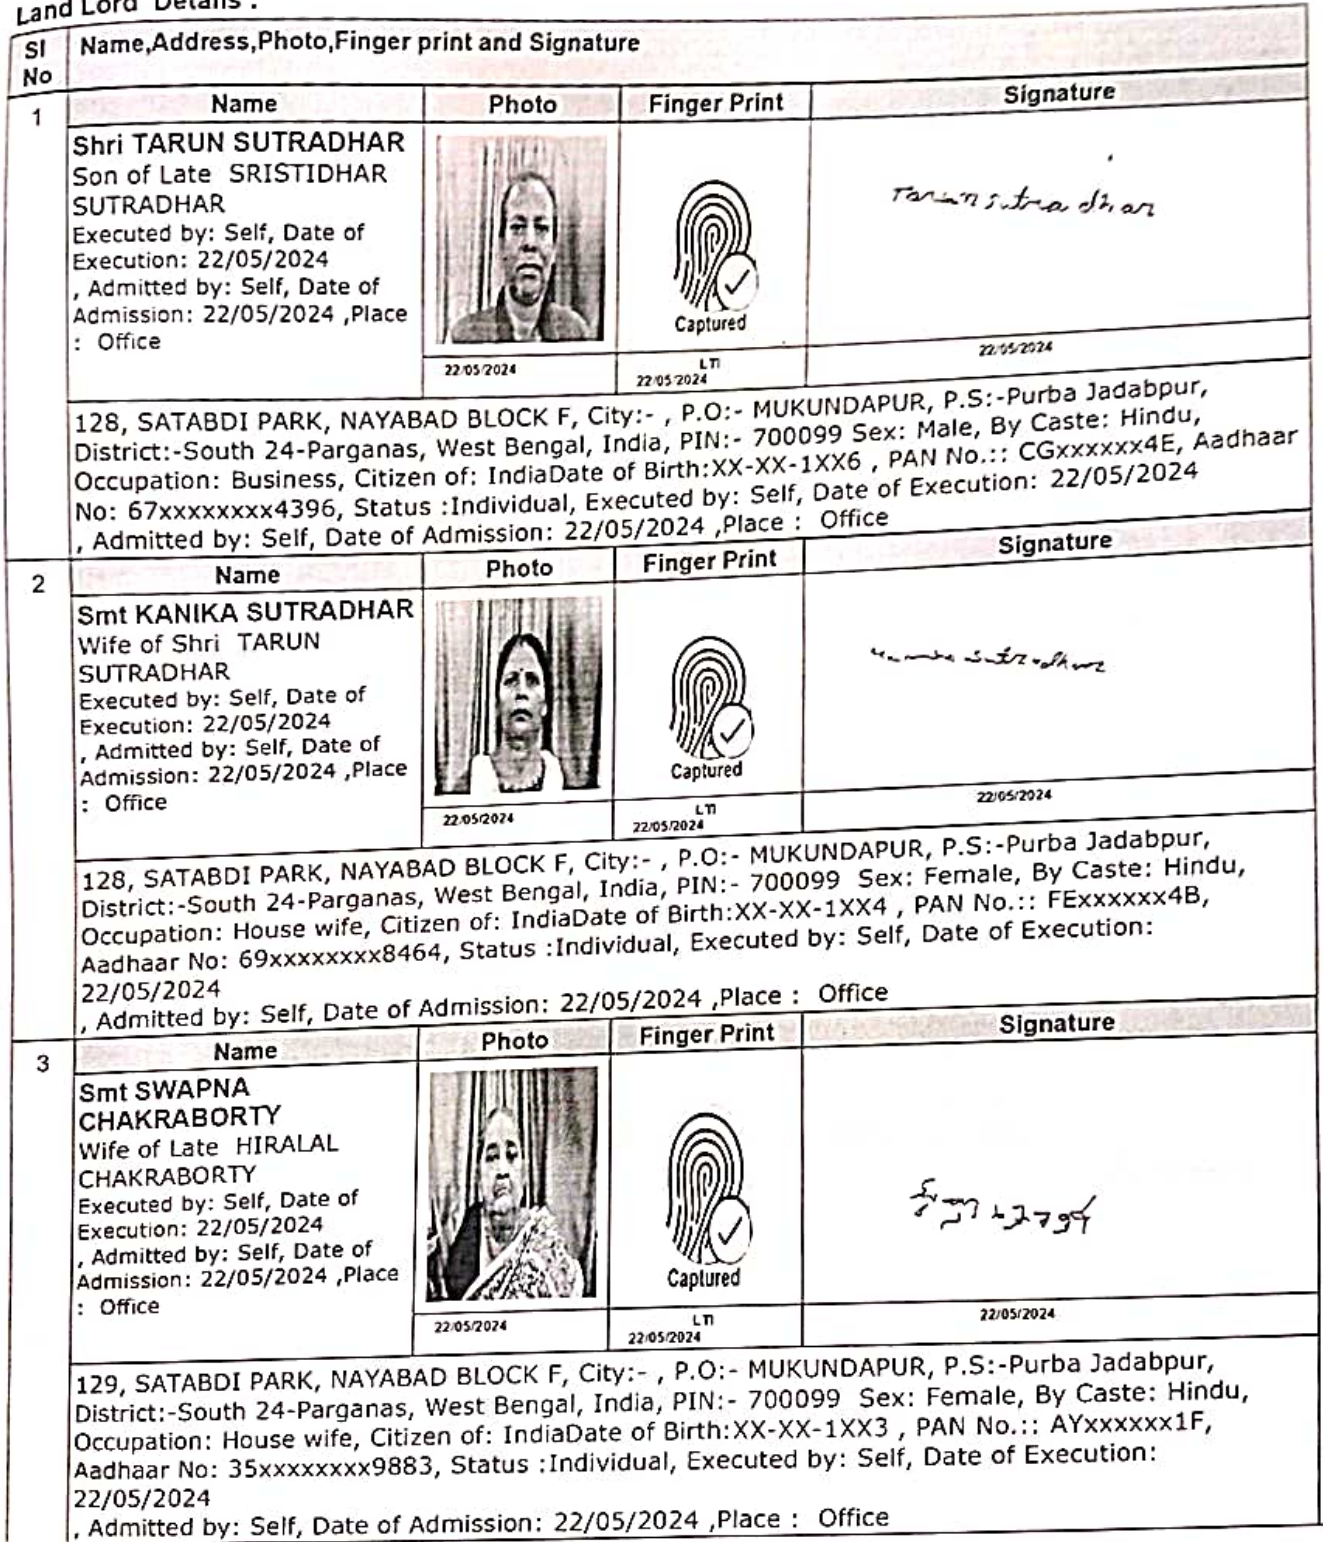 Land Lord Details :
Sl No
Name,Address,Photo,Finger print and Signature
1
Name
Photo
Finger Print
Signature
Shri TARUN SUTRADHAR
Son of Late SRISTIDHAR
SUTRADHAR
Executed by: Self, Date of
Execution: 22/05/2024
, Admitted by: Self, Date of
Admission: 22/05/2024 ,Place
: Office
Captured
Tarun sutradhar
22/05/2024
LTI
22/05/2024
22/05/2024
128, SATABDI PARK, NAYABAD BLOCK F, City:- , P.O:- MUKUNDAPUR, P.S:-Purba Jadabpur,
District:-South 24-Parganas, West Bengal, India, PIN:- 700099 Sex: Male, By Caste: Hindu,
Occupation: Business, Citizen of: IndiaDate of Birth:XX-XX-1XX6 , PAN No.:: CGxxxxxx4E, Aadhaar
No: 67xxxxxxxx4396, Status :Individual, Executed by: Self, Date of Execution: 22/05/2024
, Admitted by: Self, Date of Admission: 22/05/2024 ,Place : Office
2
Name
Photo
Finger Print
Signature
Smt KANIKA SUTRADHAR
Wife of Shri TARUN
SUTRADHAR
Executed by: Self, Date of
Execution: 22/05/2024
, Admitted by: Self, Date of
Admission: 22/05/2024 ,Place
: Office
Captured
sutradhar
22/05/2024
LTI
22/05/2024
22/05/2024
128, SATABDI PARK, NAYABAD BLOCK F, City:- , P.O:- MUKUNDAPUR, P.S:-Purba Jadabpur,
District:-South 24-Parganas, West Bengal, India, PIN:- 700099 Sex: Female, By Caste: Hindu,
Occupation: House wife, Citizen of: IndiaDate of Birth:XX-XX-1XX4 , PAN No.:: FExxxxxx4B,
Aadhaar No: 69xxxxxxxx8464, Status :Individual, Executed by: Self, Date of Execution:
22/05/2024
, Admitted by: Self, Date of Admission: 22/05/2024 ,Place : Office
3
Name
Photo
Finger Print
Signature
Smt SWAPNA
CHAKRABORTY
Wife of Late HIRALAL
CHAKRABORTY
Executed by: Self, Date of
Execution: 22/05/2024
, Admitted by: Self, Date of
Admission: 22/05/2024 ,Place
: Office
Captured
22/05/2024
LTI
22/05/2024
22/05/2024
129, SATABDI PARK, NAYABAD BLOCK F, City:- , P.O:- MUKUNDAPUR, P.S:-Purba Jadabpur,
District:-South 24-Parganas, West Bengal, India, PIN:- 700099 Sex: Female, By Caste: Hindu,
Occupation: House wife, Citizen of: IndiaDate of Birth:XX-XX-1XX3 , PAN No.:: AYxxxxxx1F,
Aadhaar No: 35xxxxxxxx9883, Status :Individual, Executed by: Self, Date of Execution:
22/05/2024
, Admitted by: Self, Date of Admission: 22/05/2024 ,Place : Office